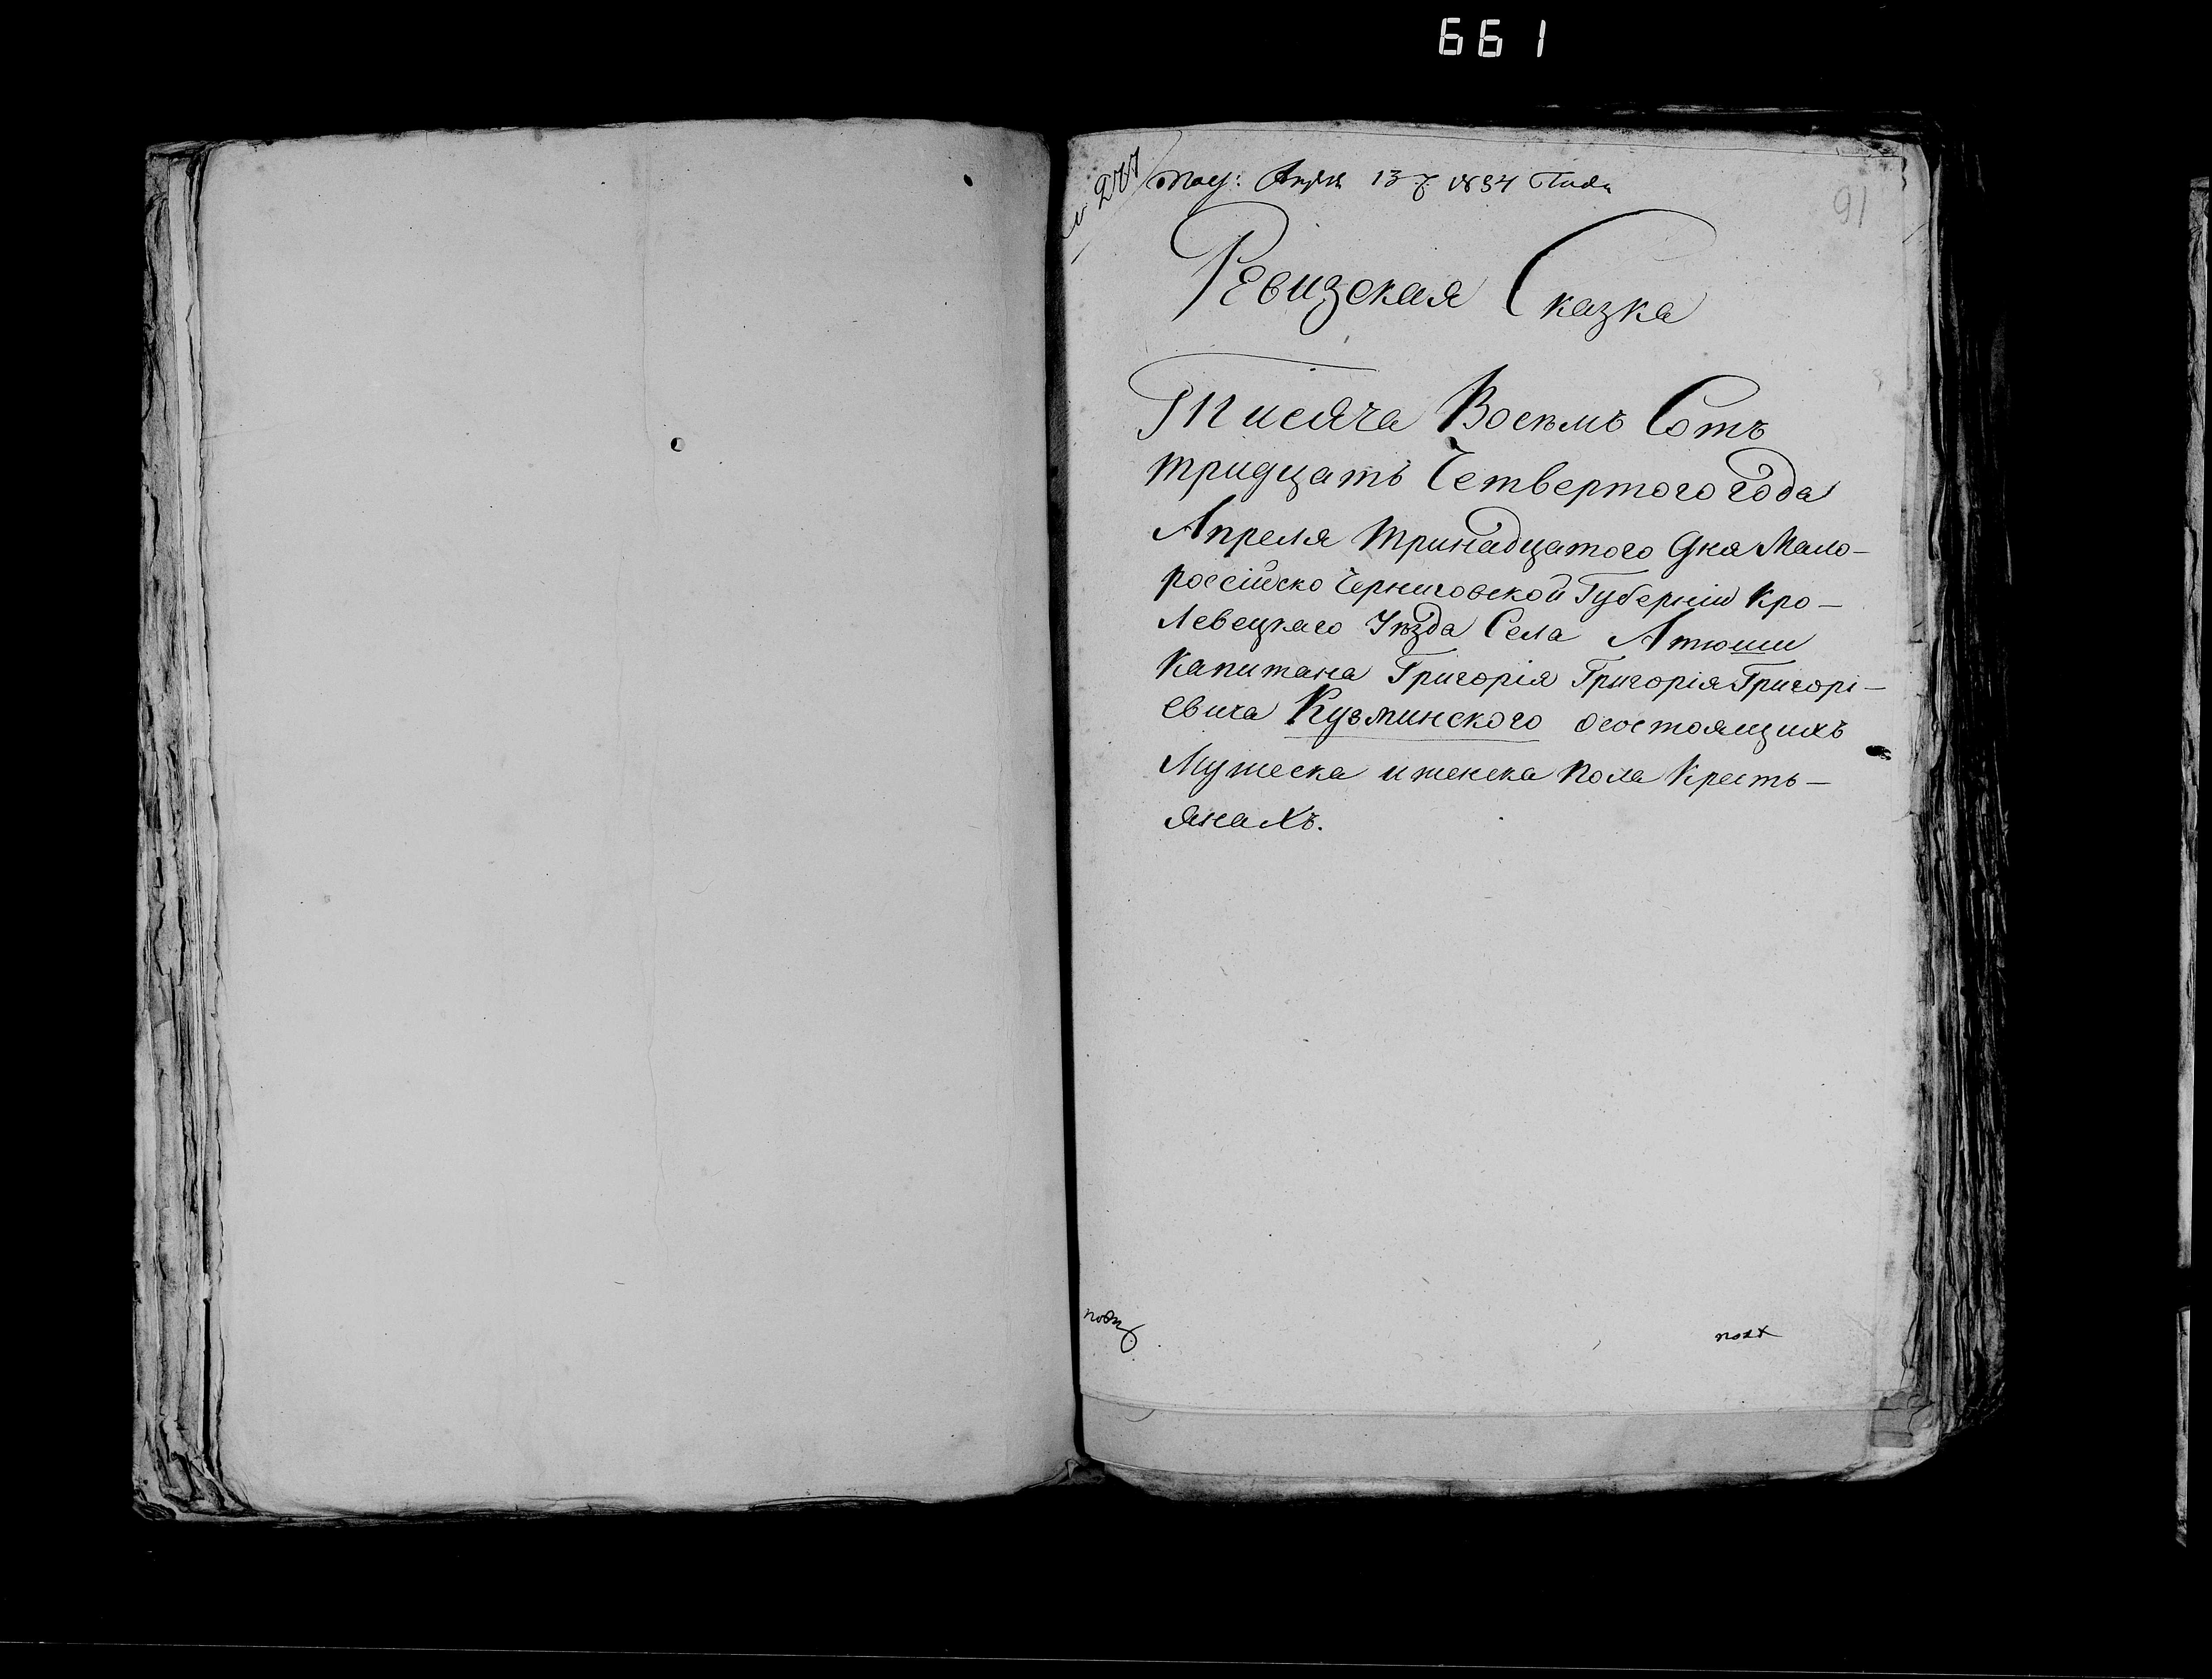 661
13 1834 Года
91
Ревизская Сказка
Тисяча Восемъ Сотъ
тридцать Четвертого года
Апреля тринадцатого дня Мало-
россійско Черниговской Губерніи Кро-
левецкаго Уѣзда Села Атюши
Капитана Григорія Григорія Григорі-
евича Кузминского осостоящихъ
Мужеска и женска пола Кресть-
янахъ.